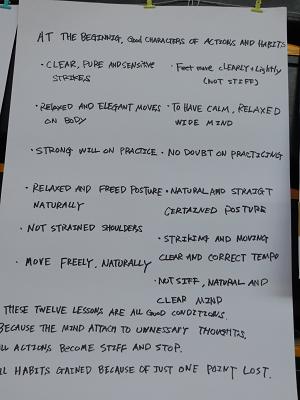 AT THE BEGINNIG, Good CHARACTERS OF ACTIONS AND HABITS
· CLEAR, PURE AND SENSITIVE
STRIKES
· Feet move CLEARLY + Lightly
(NOT STIFF)
· RELAXED AND ELEGANT MOVES
ON BODY
· TO HAVE CALM, RELAXED
WIDE MIND
· STRONG WILL ON PRACTICE
· NO DOUBT ON PRACTICING
· RELAXED AND FREED POSTURE
NATURALLY
· NATURAL AND STRAIGT
CERTAINED POSTURE
· NOT STRAINED SHOULDERS
· STRIKING AND MOVING
CLEAR AND CORRECT TEMPO
· MOVE FREELY, NATURALLY
· NOT SIFF, NATURAL AND
CLEAR MIND
THESE TWELVE LESSONS ARE ALL Good CONDITIONS.
BECAUSE THE MIND ATTACH TO UNNESSARY THOUGHTS,
ALL ACTIONS BECOME STIFF AND STOP.
ALL HABITS GAINED BECAUSE OF JUST ONE POINT LOST.